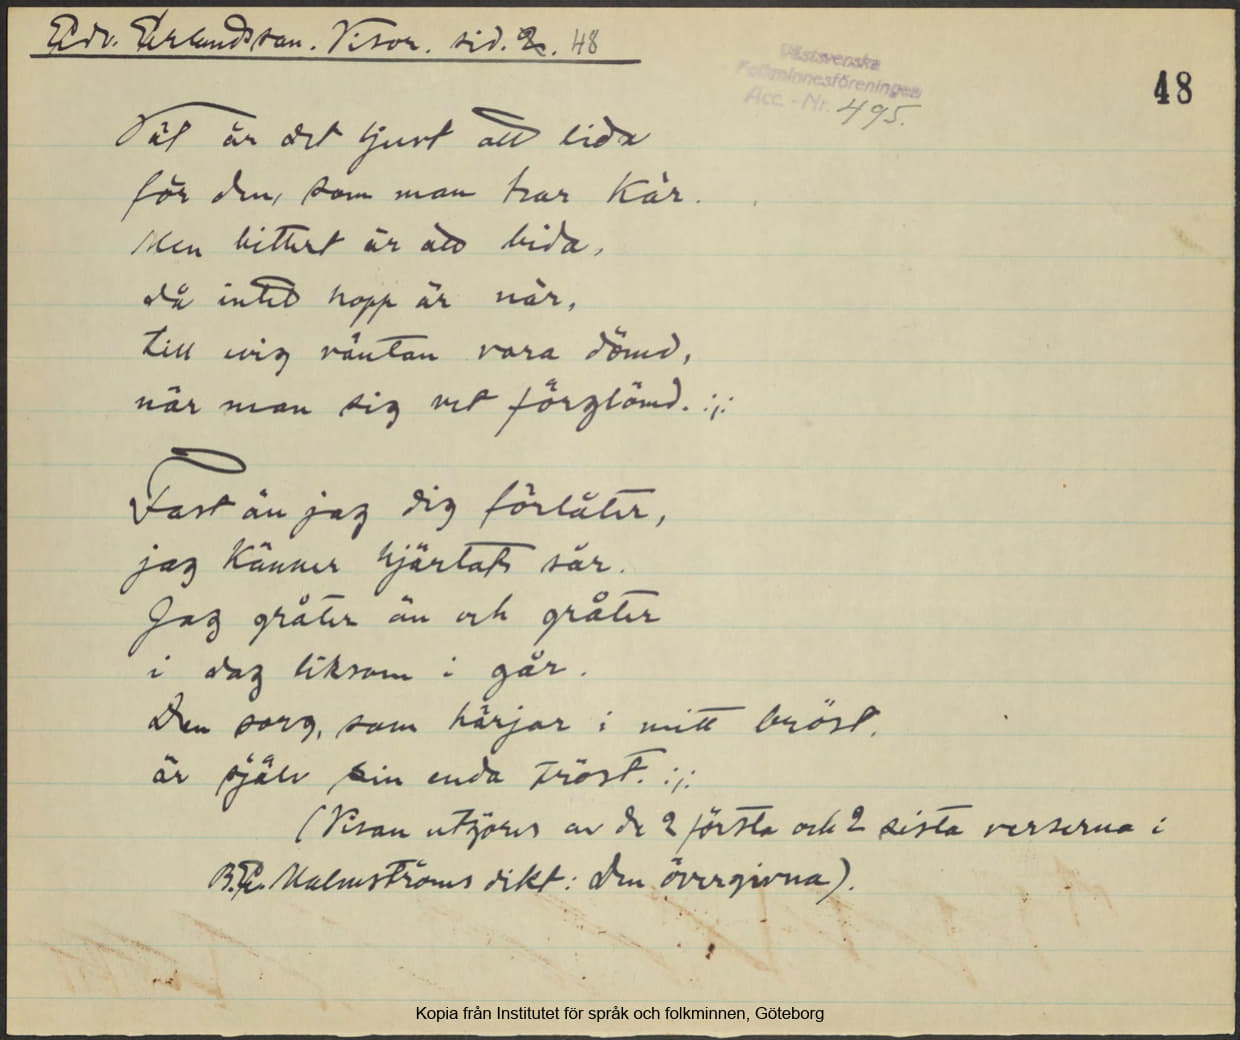 Edv. Erlandsson. Visor. sid. 2. 48
Västsvenska
Folkminnesföreningen
Acc. - Nr. 495.
48
Väl är det ljuvt att lida
för den, som man har kär.
Men bittert är att bida,
då intet hopp är när,
till evig väntan vara dömd,
när man sig vet förglömd. :,:
Fast än jag dig förlåter,
jag känner hjärtats sår.
Jag gråter än och gråter
i dag liksom i går.
Den sorg, som härjar i mitt bröst,
är själv sin enda tröst. :,:
(Visan utgöres av de 2 första och 2 sista verserna i
B.E. Malmströms dikt: Den övergivna).
Kopia från Institutet för språk och folkminnen, Göteborg